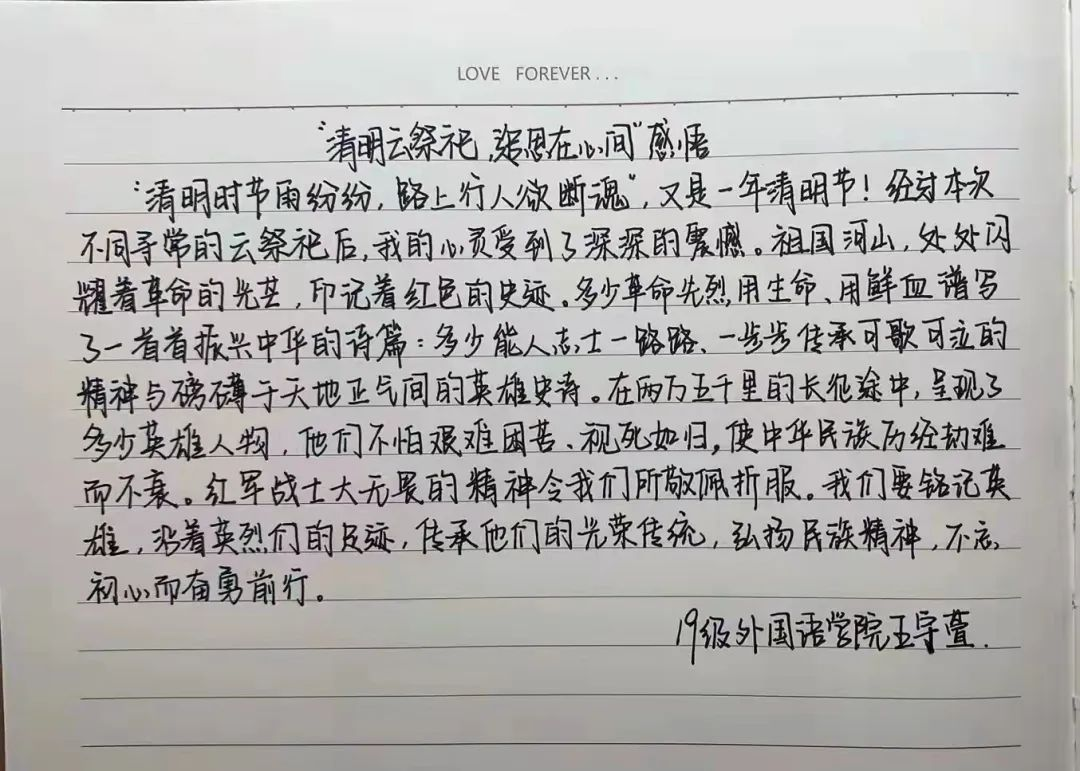 LOVE FOREVER...
“清明云祭祀,追思在心间”感悟
“清明时节雨纷纷,路上行人欲断魂”,又是一年清明节!经过本次
不同寻常的云祭祀后,我的心灵受到了深深的震撼。祖国河山,处处闪
耀着革命的光芒,印记着红色的史迹。多少革命先烈用生命、用鲜血谱写
了一首首振兴中华的诗篇:多少能人志士一路路、一步步传承可歌可泣的
精神与磅礴于天地正气间的英雄史诗。在两万五千里的长征途中,呈现了
多少英雄人物,他们不怕艰难困苦、视死如归,使中华民族历经劫难
而不衰。红军战士大无畏的精神令我们所敬佩折服。我们要铭记英
雄,沿着英烈们的足迹,传承他们的光荣传统,弘扬民族精神,不忘
初心而奋勇前行。
19级外国语学院王宇萱.